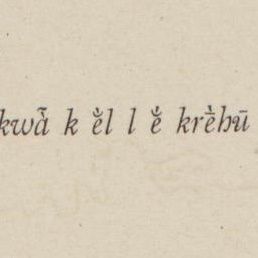 kwằ k ĕ̀l l ĕ́ krḕhū